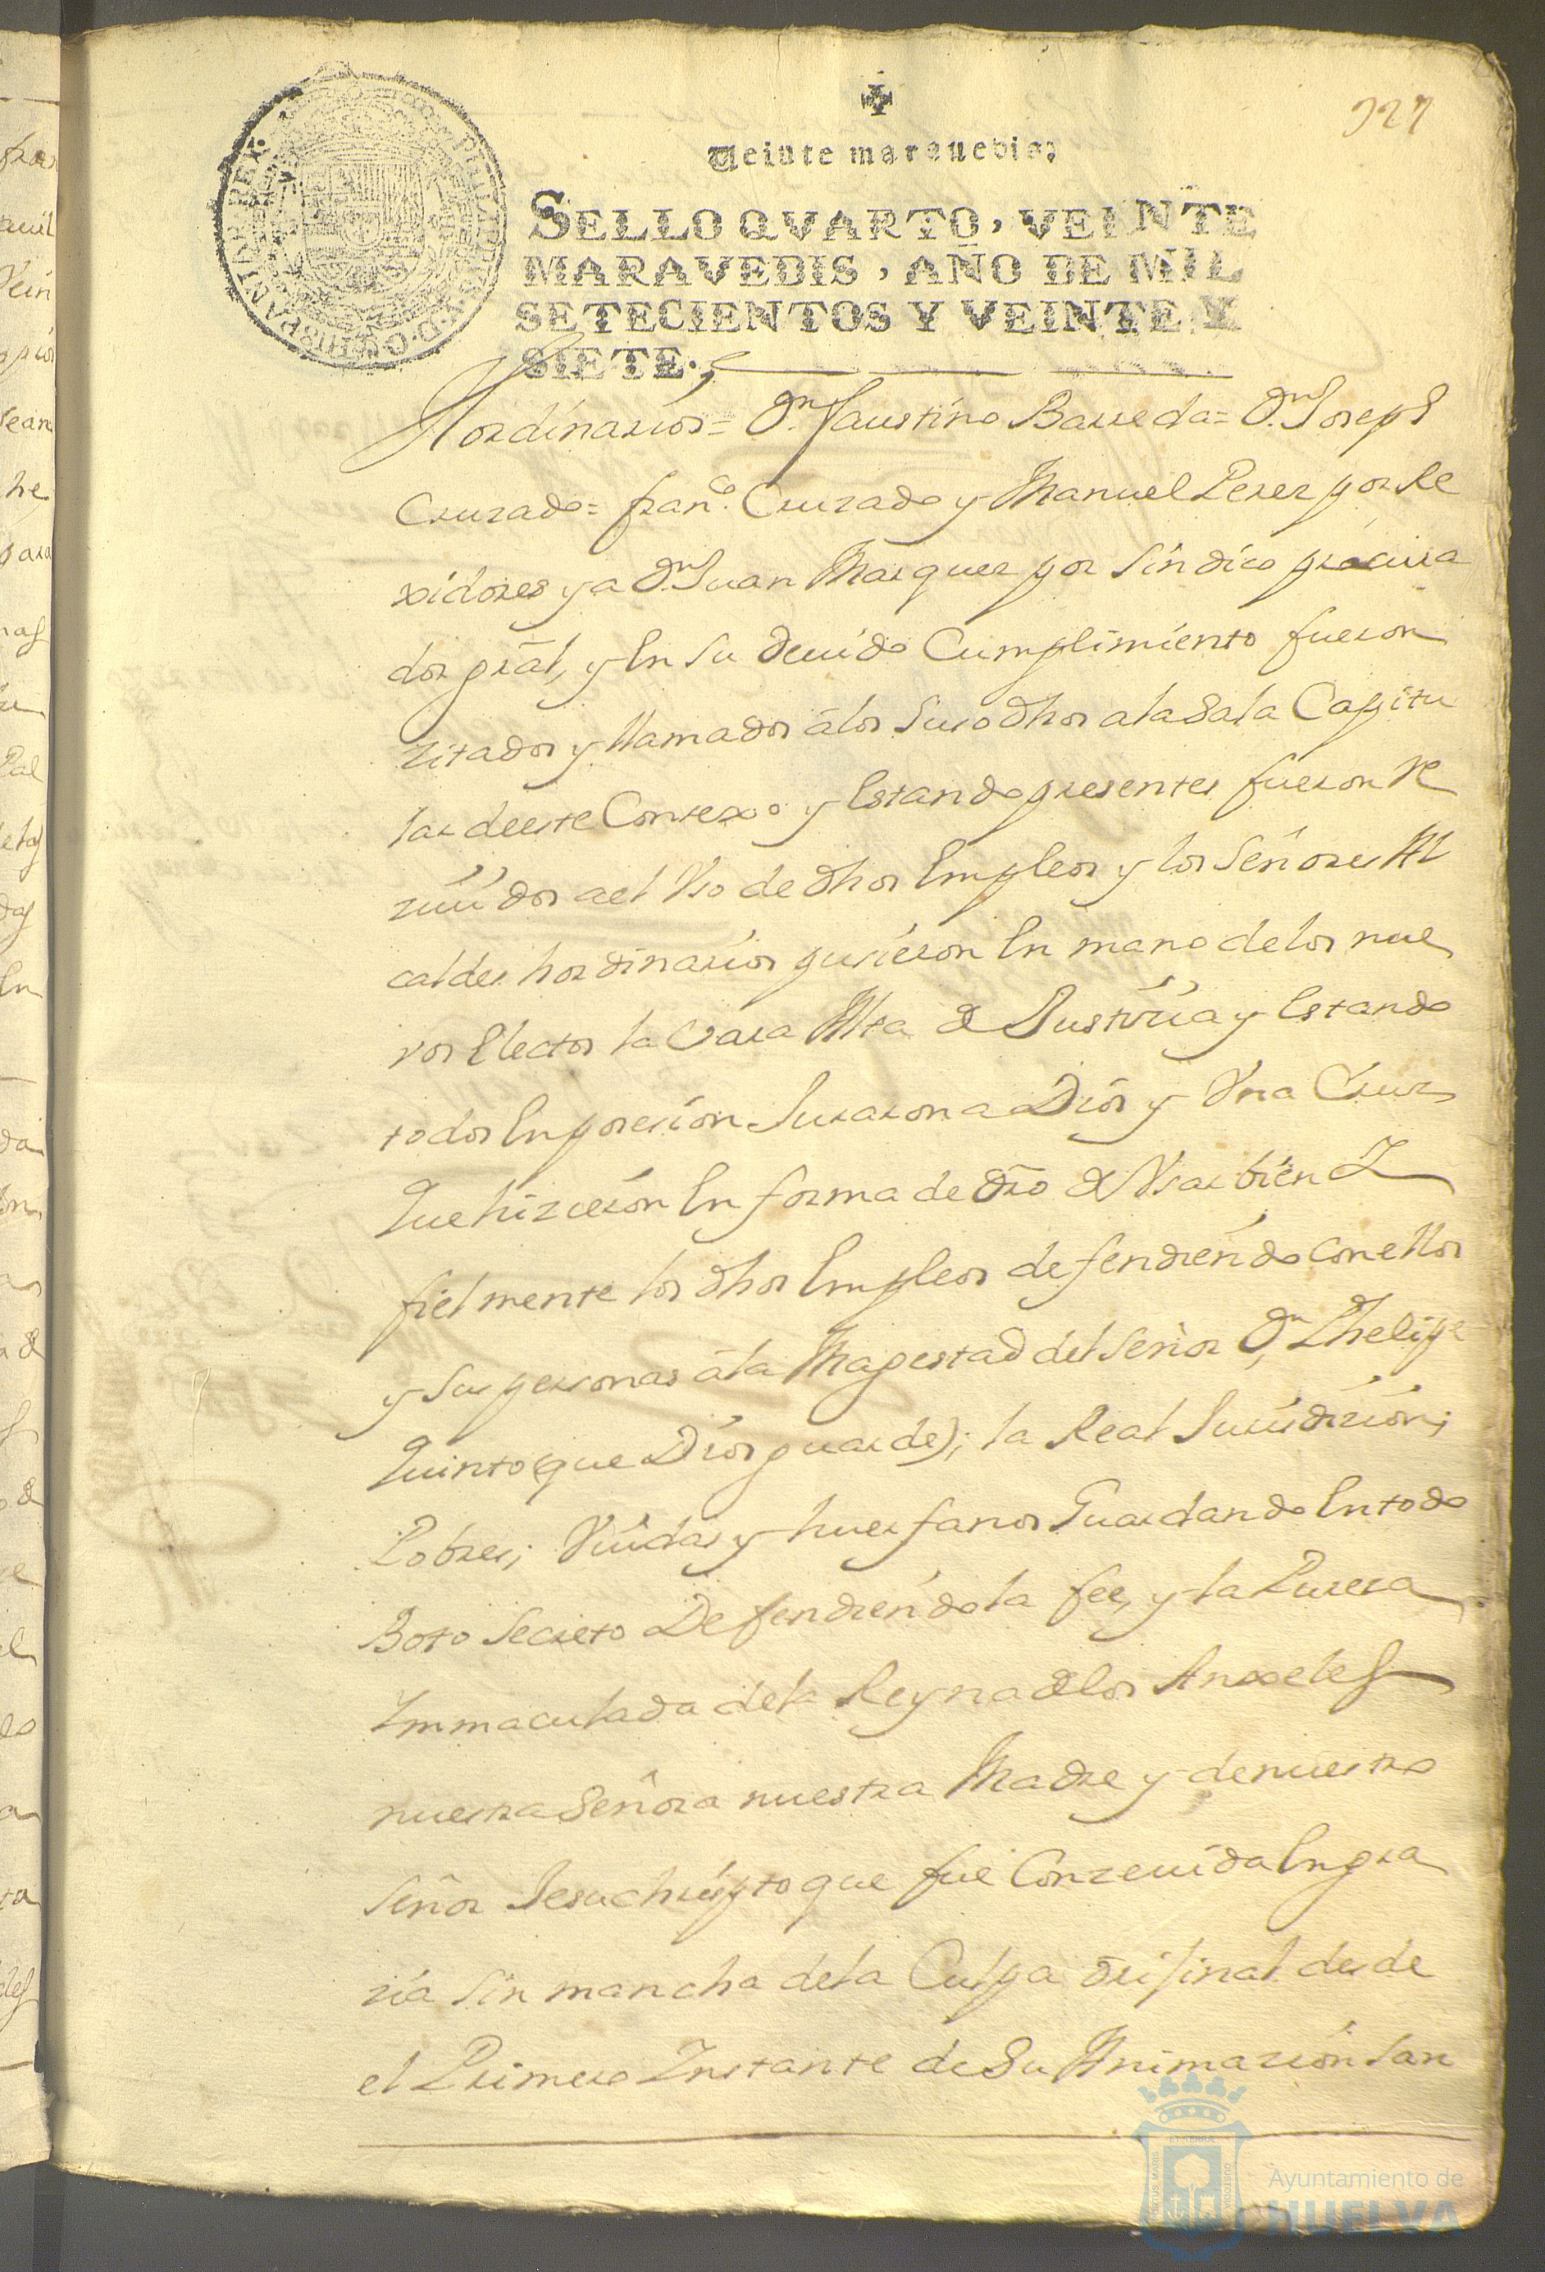 327
Veinte maravedis;
SELLO QVARTO, VEINTE
MARAVEDIS, AÑO DE MIL
SETECIENTOS Y VEINTE Y
SIETE.
Hordinarios= Dn. Faustino Barreda= Dn. Joseph
Cruzado= Franco. Cruzado y Manuel Perez por Re
xidores y a Dn. Juan Marquez por Sindico procura
dor grãl, y En su deuido Cumplimiento fueron
zitados y llamados â los suso dhos a la Sala Capitu
lar de este Conzexo y Estando presentes fueron Re
zuidos a el Vso de dhos Empleos y los Señores Al
caldes hordinarios pusieron En mano de los nue
vos Electos la Vara Alta de Justizia y Estando
todos En posesion Juraron a Dios y Vna Cruz
que hizieron En forma de dro de Vsar bien I
fielmente los dhos Empleos defendiendo con ellos
y sus personas â la Magestad del Señor Dn. Phelipe
Quinto (que Dios guarde); la Real Jurisdizion;
Pobres; Viudas y huerfanos Guardando En todo
Boto Secreto Defendiendo la fee, y la Pureza
Immaculada de la Reyna de los Anxeles
nuestra Señora nuestra Madre y de nuestro
Señor Jesuchripto que fue Conzeuida En gra
zia sin mancha de la Culpa orijinal desde
el Primero Instante de Su Animazion San
Ayuntamiento de
HUELVA